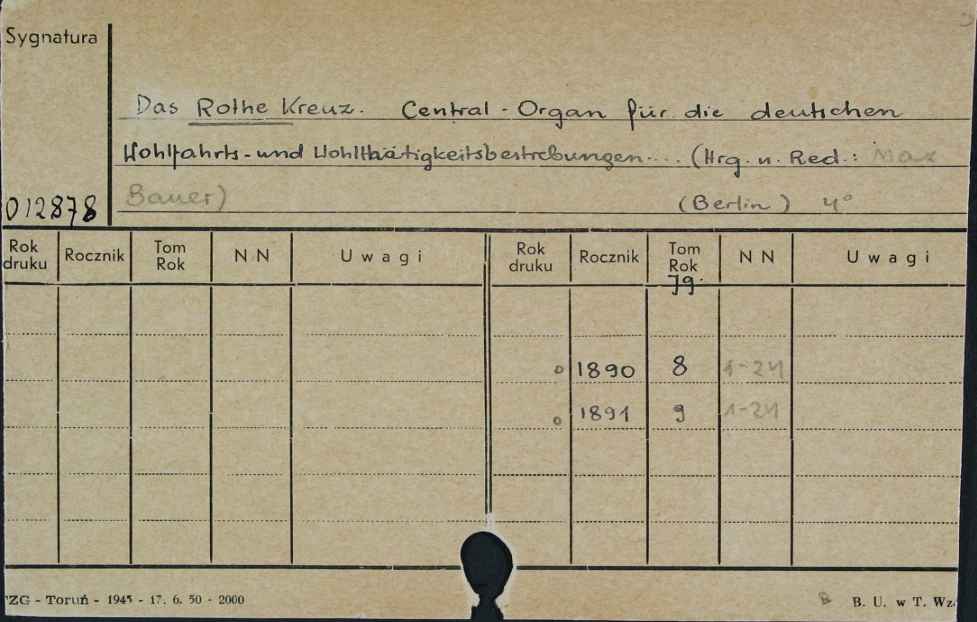 Sygnatura
Das Rothe Kreuz. Central-Organ für die deutschen
Wohlfahrts- und Wohlthätigkeitsbestrebungen... (Hrg. u. Red.: Max
Bauer) (Berlin) 4°
012878
Rok druku Rocznik Tom Rok NN Uwagi Rok druku Rocznik Tom Rok NN Uwagi
Jg.
o 1890 8 1-24
o 1891 9 1-24
ZG - Toruń - 1945 - 17. 6. 50 - 2000 B. U. w T. Wz.